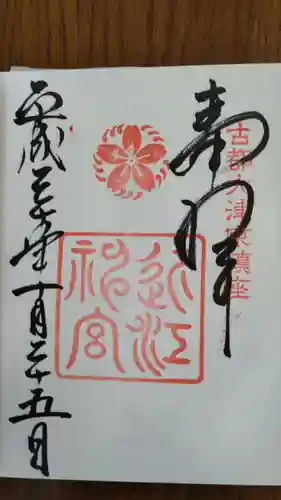 奉拝
古都大津鎮座
近江神宮
平成三十年十一月二十五日